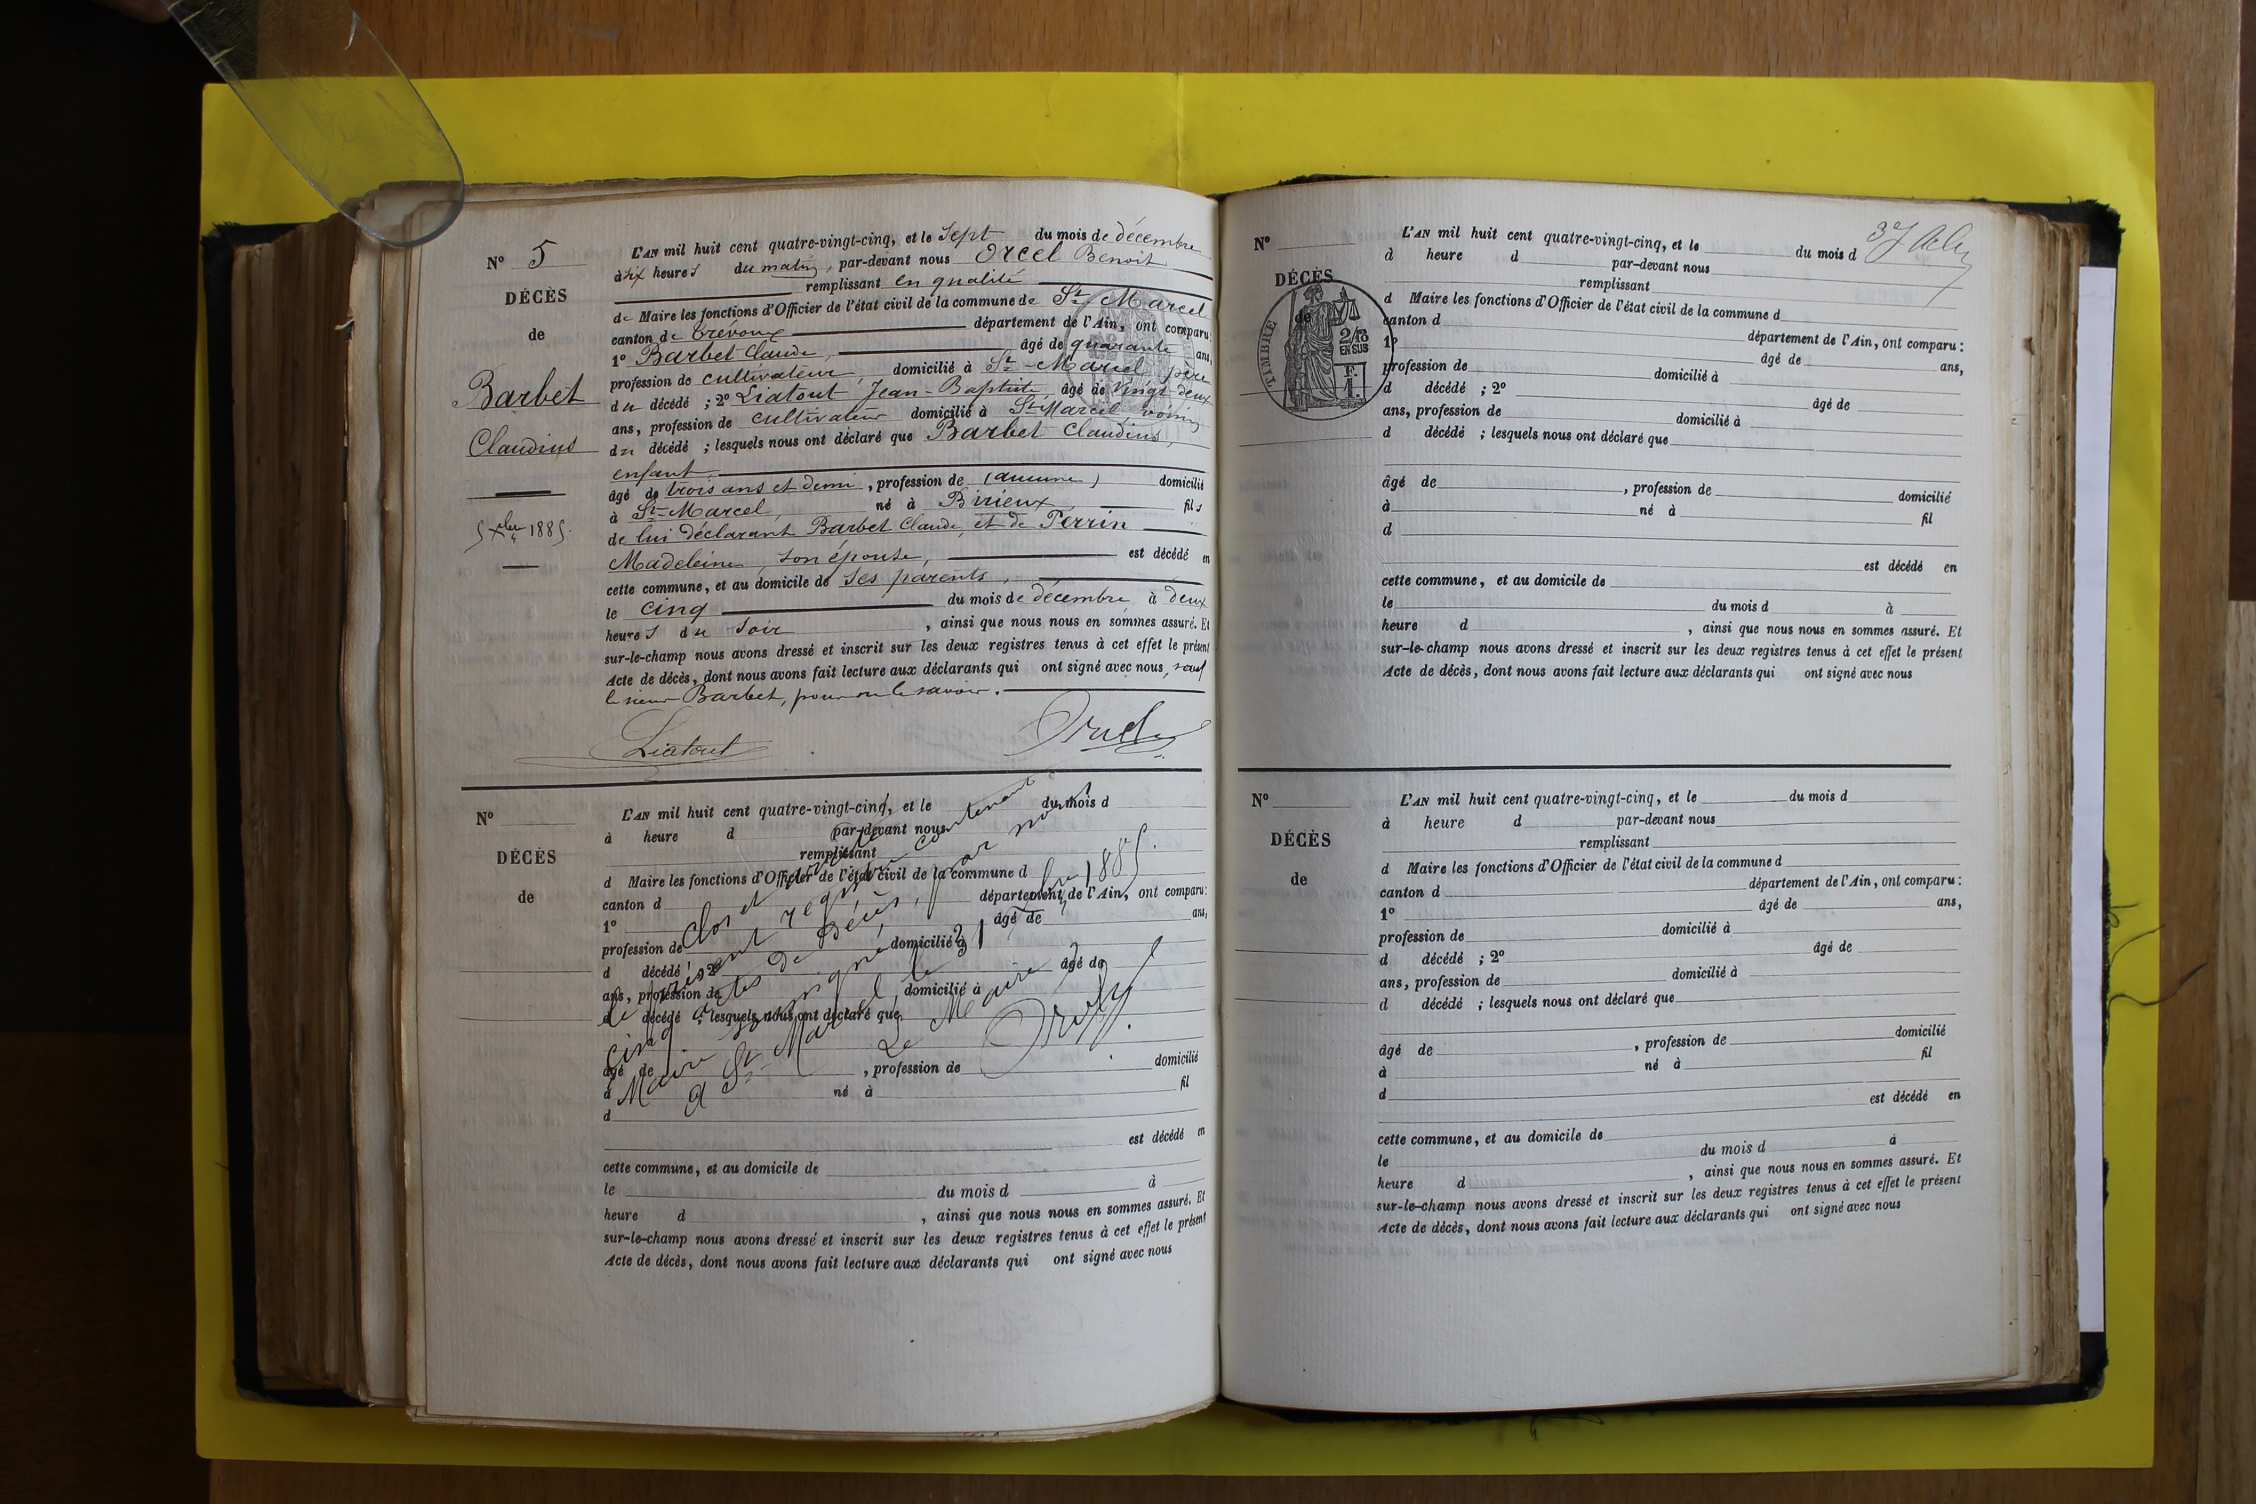 N° 5
DÉCÈS
de
Barbet
Claudius
5 Xbre 1885.
L'AN mil huit cent quatre-vingt-cinq, et le Sept du mois de décembre
à dix heures du matin, par-devant nous Orcel Benoit
remplissant en qualité
de Maire les fonctions d'Officier de l'état civil de la commune de St Marcel
canton de Trévoux département de l'Ain, ont comparu:
1° Barbet Claude, âgé de quarante ans,
profession de cultivateur, domicilié à St Marcel père
du décédé ; 2° Liatout Jean-Baptiste, âgé de vingt deux
ans, profession de cultivateur domicilié à St Marcel voisin
du décédé ; lesquels nous ont déclaré que Barbet Claudius,
enfant
âgé de trois ans et demi, profession de (aucune) domicilié
à St-Marcel, né à Birieux fils
de lui déclarant Barbet Claude, et de Perrin
Madeleine, son épouse, est décédé en
cette commune, et au domicile de ses parents,
le cinq du mois de décembre à deux
heures du soir, ainsi que nous nous en sommes assuré. Et
sur-le-champ nous avons dressé et inscrit sur les deux registres tenus à cet effet le présent
Acte de décès, dont nous avons fait lecture aux déclarants qui ont signé avec nous, sauf
le sieur Barbet, pour ne le savoir.
Liatout
N°
DÉCÈS
de
L'AN mil huit cent quatre-vingt-cinq, et le du mois d
à heure d par-devant nous
remplissant
d Maire les fonctions d'Officier de l'état civil de la commune d
canton d département de l'Ain, ont comparu:
1° âgé de ans,
profession de domicilié à
d décédé ; 2° âgé de
ans, profession de domicilié à
d décédé ; lesquels nous ont déclaré que
âgé de , profession de domicilié
à né à fil
d
est décédé en
cette commune, et au domicile de
le du mois d à
heure d , ainsi que nous nous en sommes assuré. Et
sur-le-champ nous avons dressé et inscrit sur les deux registres tenus à cet effet le présent
Acte de décès, dont nous avons fait lecture aux déclarants qui ont signé avec nous
Clos et
le présent registre contenant
cinq actes de Décès, par nous
Maire soussigné
à St-Marcel le 31 Xbre 1885.
Le Maire
N°
DÉCÈS
de
TIMBRE
2/10
EN SUS
F.
1.
L'AN mil huit cent quatre-vingt-cinq, et le du mois d
à heure d par-devant nous
remplissant
d Maire les fonctions d'Officier de l'état civil de la commune d
canton d département de l'Ain, ont comparu:
1° âgé de ans,
profession de domicilié à
d décédé ; 2° âgé de
ans, profession de domicilié à
d décédé ; lesquels nous ont déclaré que
âgé de , profession de domicilié
à né à fil
d
est décédé en
cette commune, et au domicile de
le du mois d à
heure d , ainsi que nous nous en sommes assuré. Et
sur-le-champ nous avons dressé et inscrit sur les deux registres tenus à cet effet le présent
Acte de décès, dont nous avons fait lecture aux déclarants qui ont signé avec nous
N°
DÉCÈS
de
L'AN mil huit cent quatre-vingt-cinq, et le du mois d
à heure d par-devant nous
remplissant
d Maire les fonctions d'Officier de l'état civil de la commune d
canton d département de l'Ain, ont comparu:
1° âgé de ans,
profession de domicilié à
d décédé ; 2° âgé de
ans, profession de domicilié à
d décédé ; lesquels nous ont déclaré que
âgé de , profession de domicilié
à né à fil
d
est décédé en
cette commune, et au domicile de
le du mois d à
heure d , ainsi que nous nous en sommes assuré. Et
sur-le-champ nous avons dressé et inscrit sur les deux registres tenus à cet effet le présent
Acte de décès, dont nous avons fait lecture aux déclarants qui ont signé avec nous